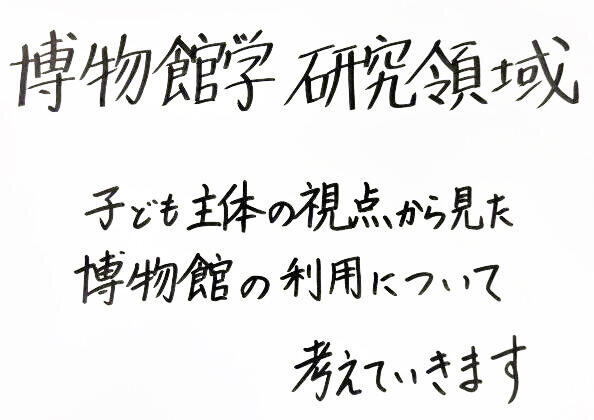 博物館学 研究領域
子ども主体の視点から見た
博物館の利用について
考えていきます